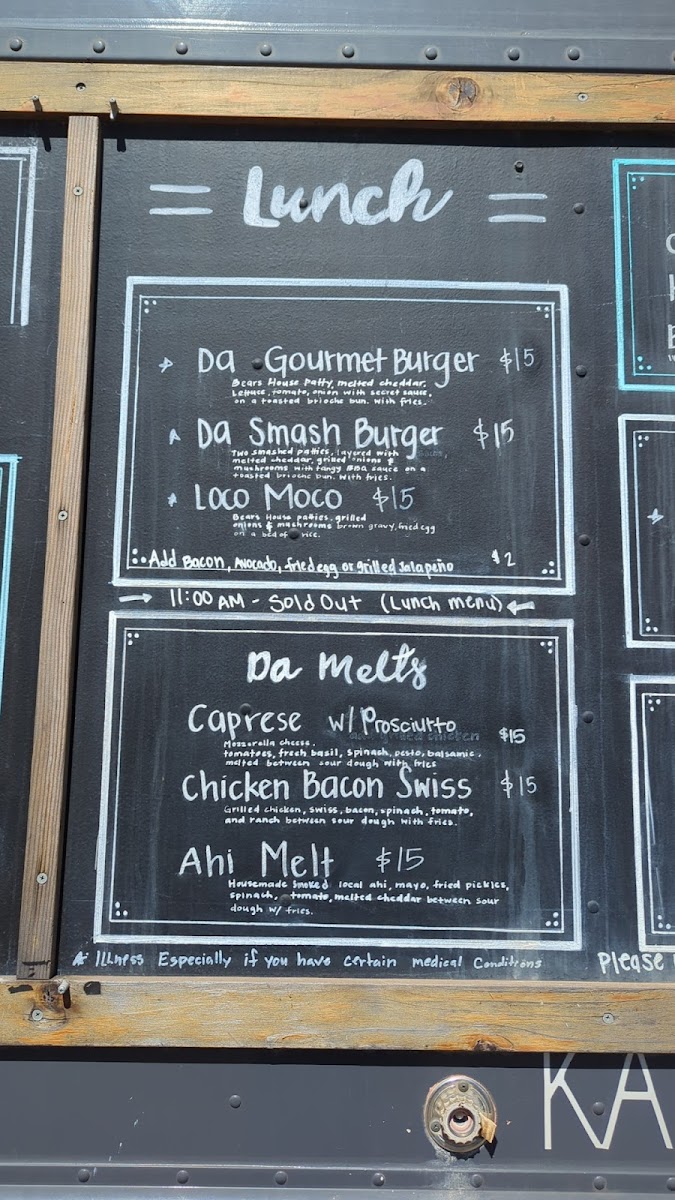 = Lunch =
* Da Gourmet Burger $15
Bears House Patty, melted cheddar,
Lettuce, tomato, onion with secret sauce,
on a toasted brioche bun. With fries.
* Da Smash Burger $15
Two smashed patties, layered with
melted cheddar, grilled onions &
mushrooms with tangy BBQ sauce on a
toasted brioche bun. With fries.
* Loco Moco $15
Bears House patties, grilled
onions & mushrooms brown gravy, fried egg
on a bed of rice.
Add Bacon, Avocado, fried egg or grilled Jalapeño $2
→ 11:00 AM - Sold Out (Lunch menu) ←
Da Melts
Caprese w/ Prosciutto $15
Mozzarella cheese,
tomatoes, fresh basil, spinach, pesto, balsamic,
melted between sour dough with fries
Chicken Bacon Swiss $15
Grilled chicken, swiss, bacon, spinach, tomato,
and ranch between sour dough with fries.
Ahi Melt $15
Housemade smoked local ahi, mayo, fried pickles,
spinach, tomato, melted cheddar between sour
dough w/ fries.
* Illness Especially if you have certain medical Conditions
Please
KA